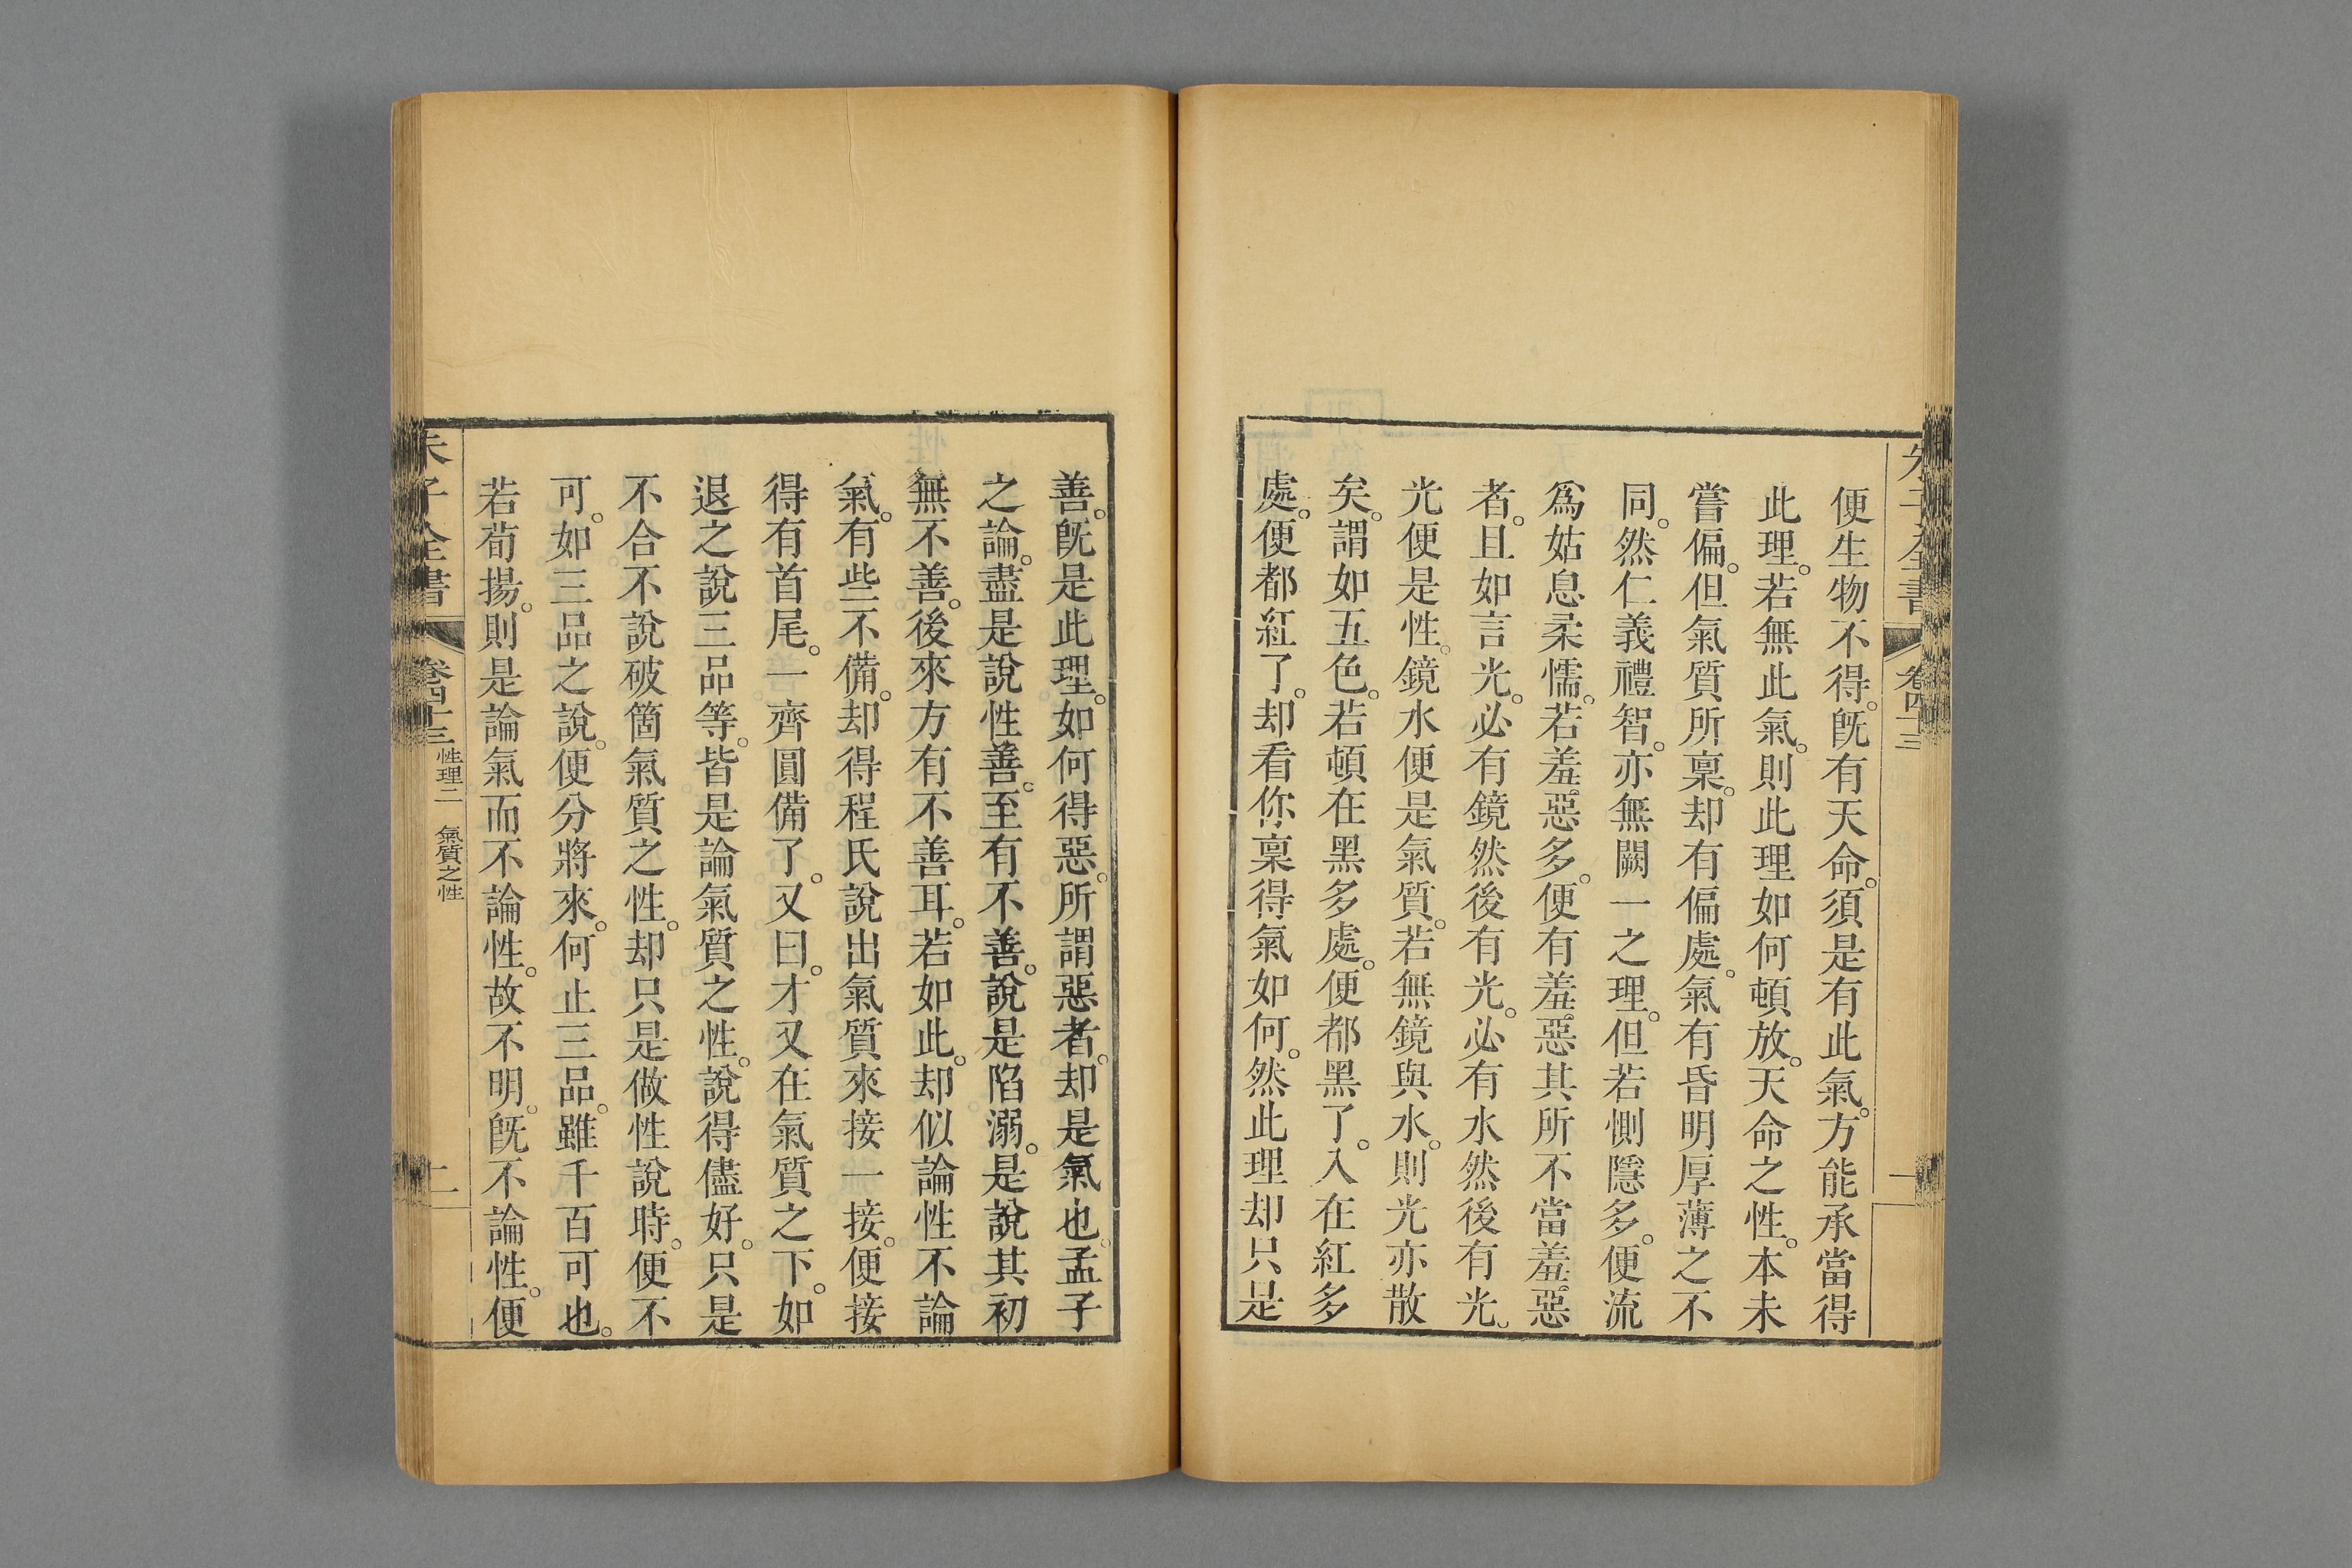 便生物不得。旣有天命。須是有此氣。方能承當得
此理。若無此氣。則此理如何頓放。天命之性。本未
嘗偏。但氣質所稟。却有偏處。氣有昏明厚薄之不
同。然仁義禮智。亦無闕一之理。但若惻隱多。便流
爲姑息柔懦。若羞惡多。便有羞惡其所不當羞惡
者。且如言光。必有鏡然後有光。必有水然後有光。
光便是性。鏡水便是氣質。若無鏡與水。則光亦散
矣。謂如五色。若頓在黑多處。便都黑了。入在紅多
處。便都紅了。却看你稟得氣如何。然此理却只是
善。旣是此理。如何得惡。所謂惡者。却是氣也。孟子
之論。盡是說性善。至有不善。說是陷溺。是說其初
無不善。後來方有不善耳。若如此。却似論性不論
氣。有些不備。却得程氏說出氣質來接一接。便接
得有首尾。一齊圓備了。又曰。才又在氣質之下。如
退之說三品等。皆是論氣質之性。說得儘好。只是
不合不說破箇氣質之性。却只是做性說時。便不
可。如三品之說。便分將來。何止三品。雖千百可也。
若荀揚。則是論氣而不論性。故不明。旣不論性。便
朱子全書 卷四十三 性理二 氣質之性 二